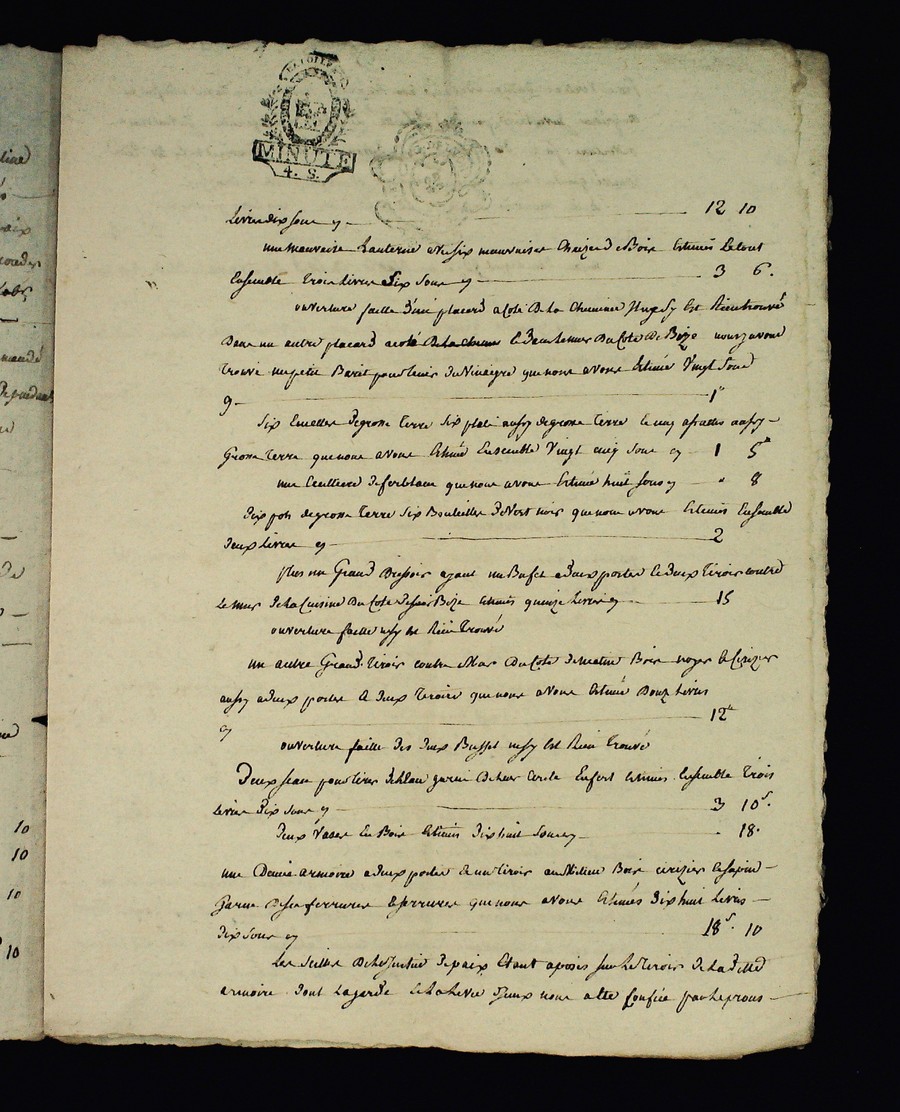 MINUTE
4. S.
Livres dix sous cy — 12 10
une mauvaise Lanterne avec six mauvaises Chaizes de Bois Estimés Le tout
Ensemble Trois Livres Six Sous cy — 3 6.
ouverture faitte d'un placard a Coté De La Cheminée Est Rien trouvé
Dans un autre placard a coté Le Mur Du Coté De Bize nous y avons
Trouvé un petit Baril pour tenir Du Vinaigre que nous avons Estimé Vingt Sous
cy — 1"
Six Ecuelles De grosse Terre Six plats aussy de grosse Terre Et cinq assiettes aussy —
Grosse Terre que nous avons Estimé Ensemble Vingt cinq Sous cy — 1 5
une Cuilliere De ferblanc que nous avons Estimée huit sous cy — " 8
Dix pots de grosse Terre Six Bouteilles De Vert noir que nous avons Estimés Ensemble
Deux Livres cy — 2
plus un Grand Dressoir ayant un Bufet a Deux portes Et Deux Tiroirs contre
Le mur De La Cuisine Du Coté De Bize Estimés quinze Livres cy — 15
ouverture faitte n'y est Rien Trouvé
un autre Grand Tiroir contre Mur Du Coté De matin Bois noyer Et Cerizier
aussy a Deux portes Et Deux Tiroirs que nous avons Estimé Douze Livres
cy — 12"
ouverture faitte Des Deux Buffet n'y est Rien Trouvé
Deux seau pour tirer De L'Eau garni De Leur Cercle En fert Estimés Ensemble Trois
Livres Dix Sous cy — 3 10 s.
Deux Vases En Bois Estimés Dix huit Sous cy — " 18.
une Demie armoire a Deux portes Et un Tiroir au Milieu Bois cerizier Et Sapin —
garnie De ses ferrures Et serrures que nous avons Estimés Dix huit Livres —
Dix Sous cy — 18 10
Les Scellés De La Justice De paix Etant aposés sur Le Tiroir De La Ditte
armoire Dont La garde Et La Levée D'Iceux nous a Eté Confiée par Le proces —